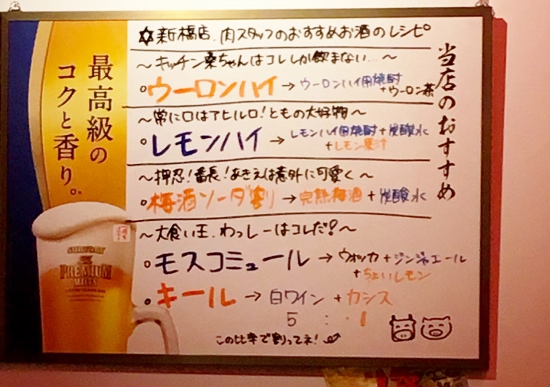 ✡新橋店、肉スタッフのおすすめお酒のレシピ
当店のおすすめ
〜キッチン桑ちゃんはコレしか飲まない…〜
ウーロンハイ → ウーロンハイ用焼酎
+ ウーロン茶
〜常に口はアヒル口!ともの大好物〜
レモンハイ → レモンハイ用焼酎 + 炭酸水
+ レモン果汁
〜押忍!番長!あきえは意外に可愛く〜
梅酒ソーダ割 → 完熟梅酒 + 炭酸水
〜大食い王、わっしーはコレだ?〜
モスコミュール → ウォッカ + ジンジャエール
+ ちょいレモン
キール → 白ワイン + カシス
5 : 1
この比率で割ってネ!
最高級の
コクと香り。
SUNTORY
THE
PREMIUM
MALT'S